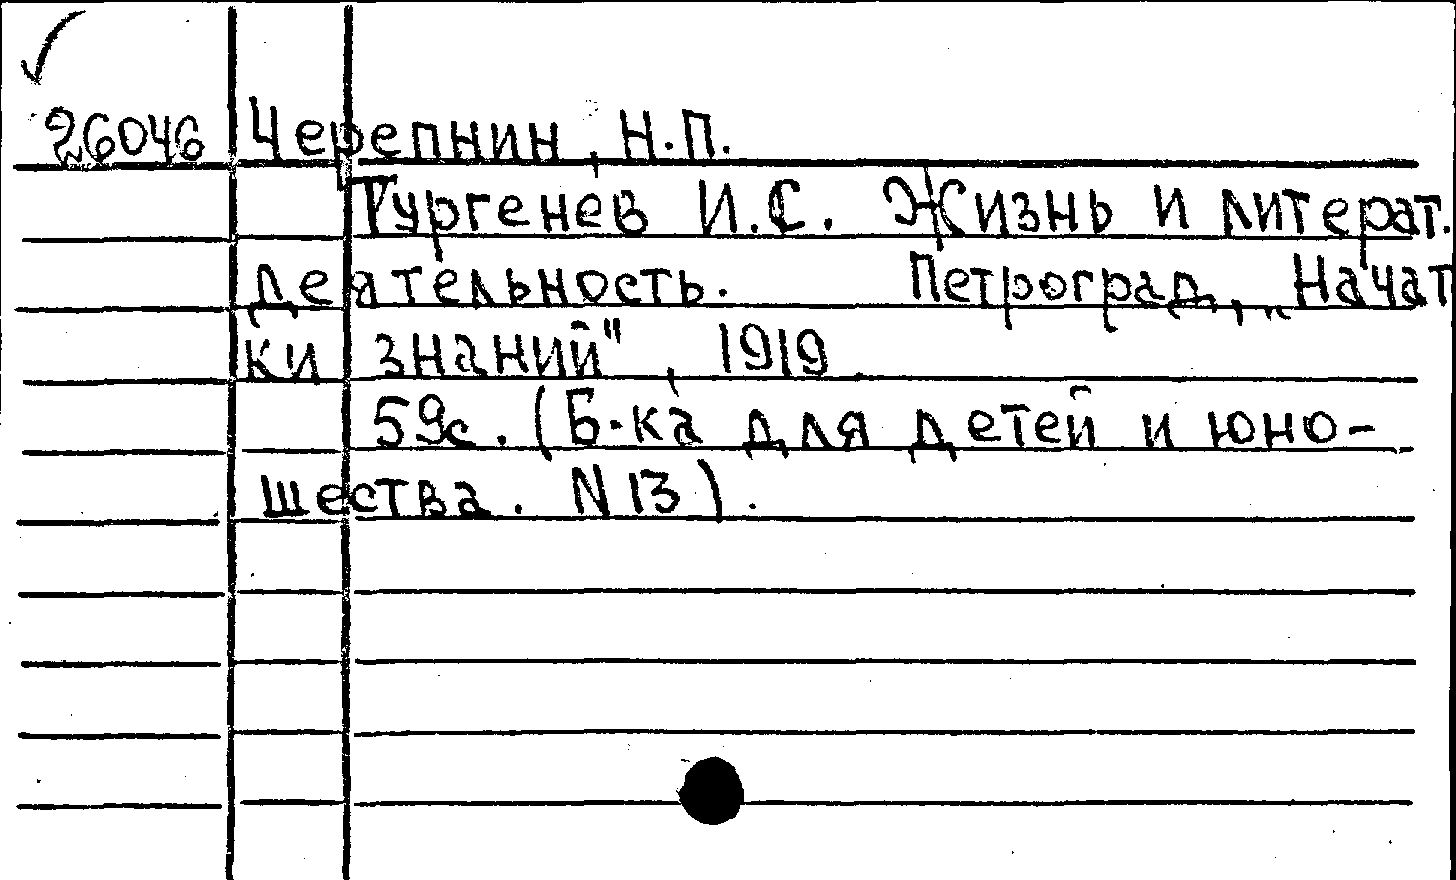 26046 Черепнин, Н.П.
Тургенев И.С. Жизнь и литерат.
деятельность. Петроград, „Начат
ки знаний", 1919
59с. (Б-ка для детей и юно-
шества. N 13).